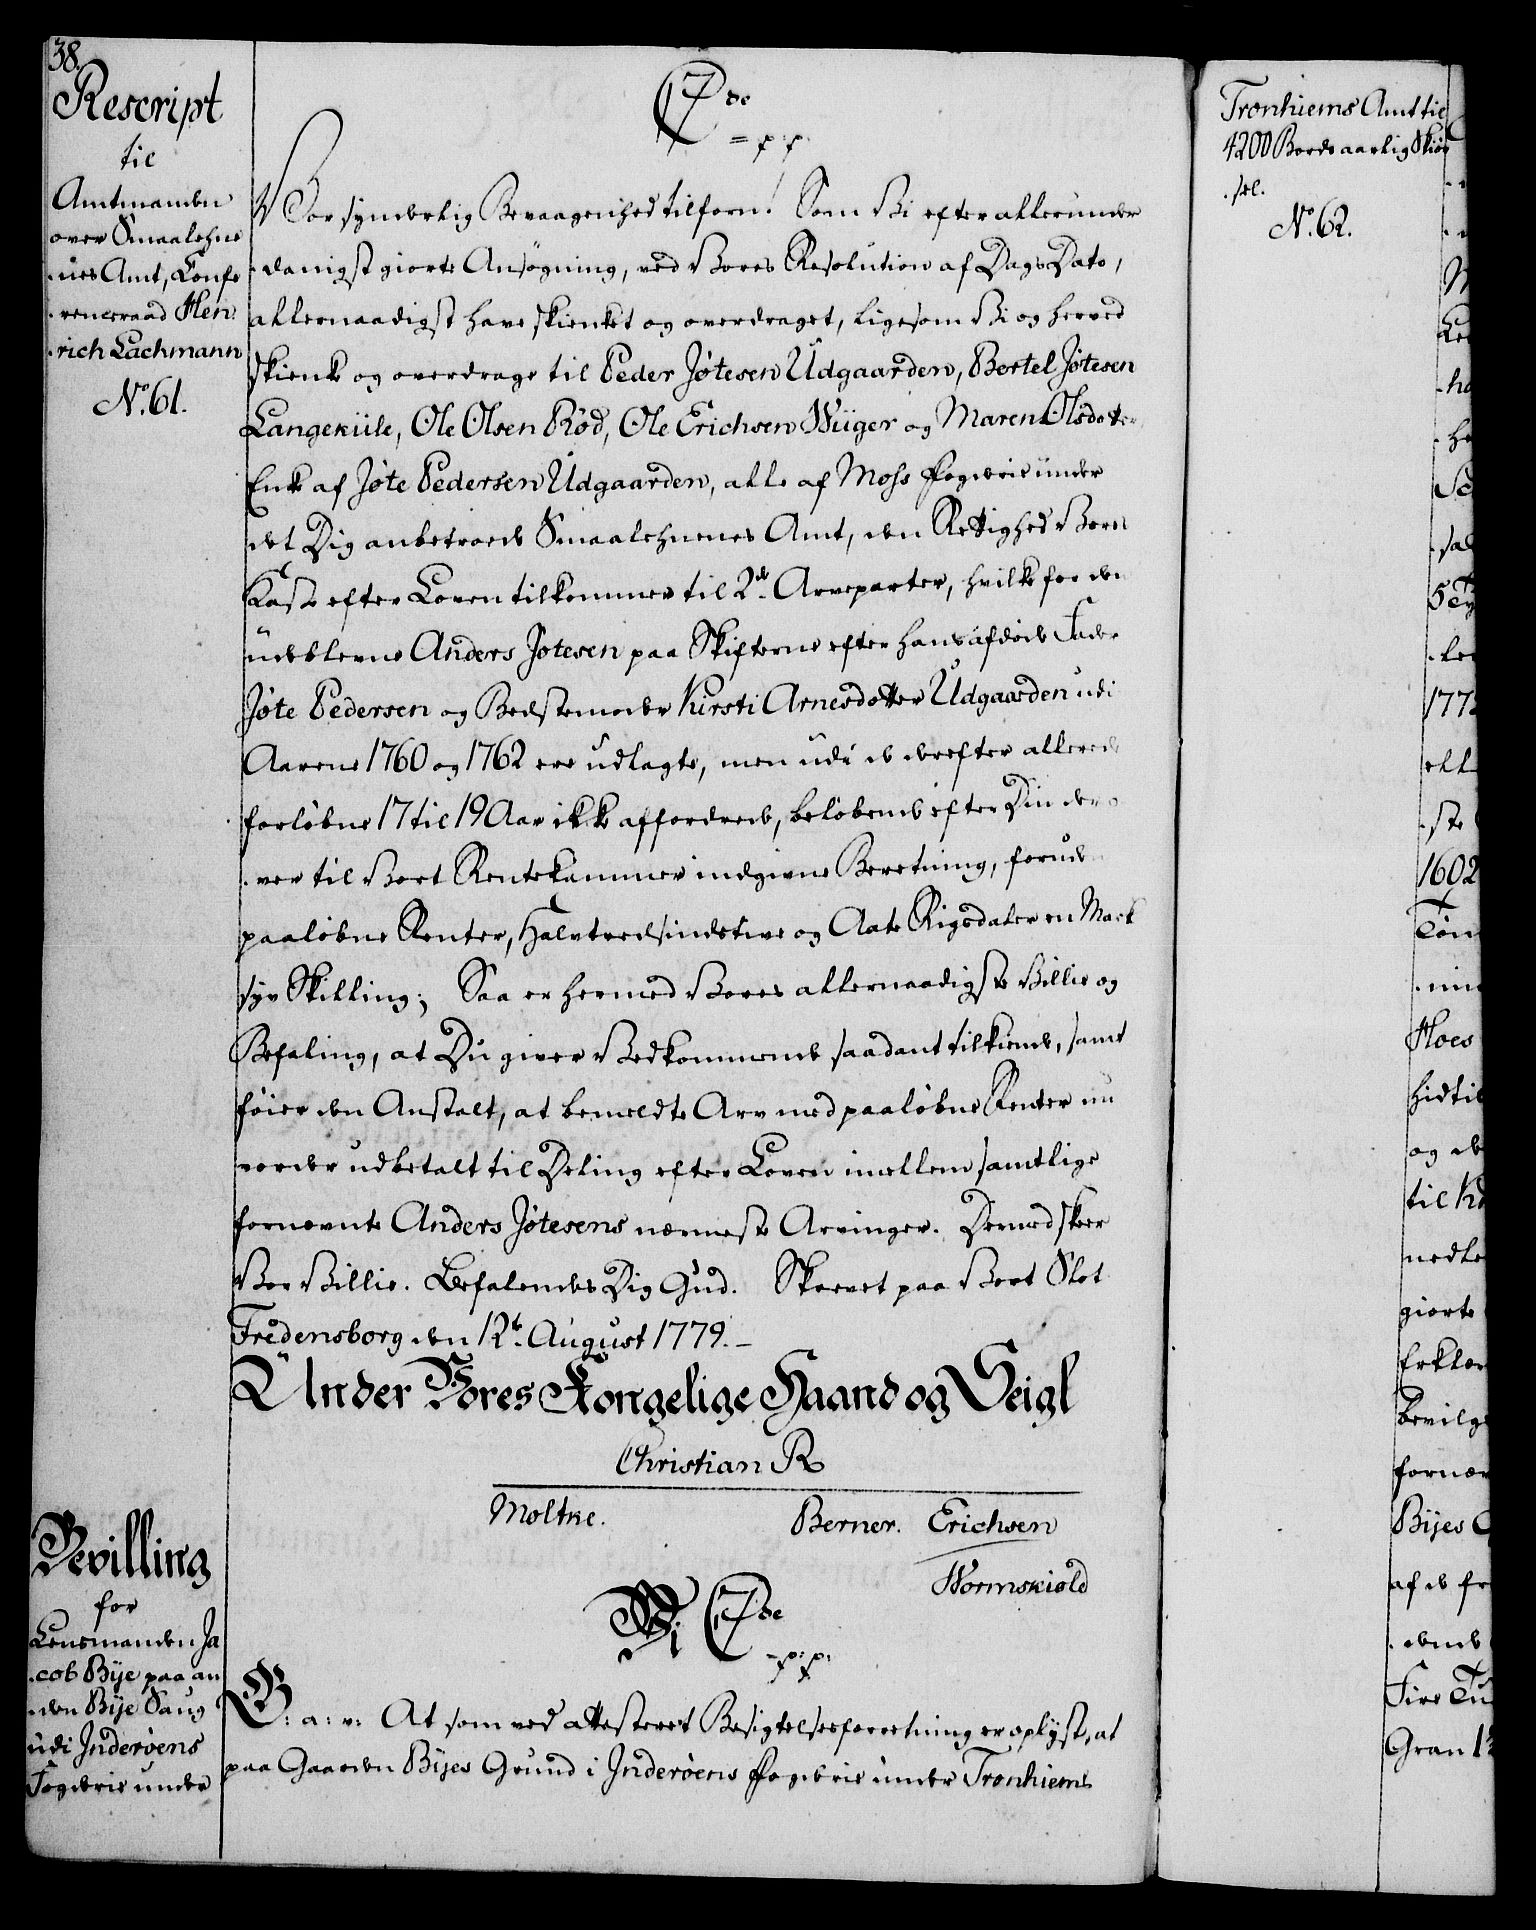 38.
Rescript
til
Amtmanden
over Smaalehne
-nes Amt, Confe
-renceraad Hen
-rich Lachmann
No. 61.
C7de
= p. p.
Vor synderlig Bevaagenhed tilforn! Som Vi efter allerunder
-danigst giorte Ansøgning, ved Vores Resolution af Dags Dato,
allernaadigst have skienket og overdraget, ligesom Vi og herved
skienke og overdrage til Peder Jøtesen Udgaarden, Bertel Jøtesen
Langekiile, Ole Olsen Rød, Ole Erichsen Wiiger og Maren Olsdotter
Enke af Jøte Pedersen Udgaarden, alle af Moss Fogderie under
det Dig anbetroede Smaalehnenes Amt, den Rettighed Vores
Kasse efter Loven tilkommer til 2de Arveparter, hvilke for den
udeblevne Anders Jøtesen paa Skifterne efter hans afdøde Fader
Jøte Pedersen og Bedstemoder Kirsti Arnesdotter Udgaarden udi
Aarene 1760 og 1762 ere udlagte, men udi de derefter allerede
forløbne 17 til 19 Aar ikke affordrede, beløbende efter Din der
-ver til Vort Rentekammer indgivne Beretning, foruden
paaløbne Renter, Halvtredsindstive og Aate Rigsdaler en Mark
syv Skilling; Saa er hermed Vores allernaadigste Villie og
Befaling, at Du giver Vedkommende saadant tilkiende, samt
føier den Anstalt, at bemeldte Arv med paaløbne Renter nu
vorder udbetalt til Deling efter Loven imellem samtlige
fornevnte Anders Jøtesens nærmeste Arvinger. Dermed skeer
Vor Villie. Befalendes Dig Gud. Skrevet paa Vort Slot
Fredensborg den 12te August 1779.-
Under Vores Kongelige Haand og Seigl
Christian R
Moltke. Berner. Erichsen
Wormskiold
Bevilling
for
Lensmanden Ja
-cob Bije paa an
-den Bije Saug
udi Inderøens
Fogderie under
Vi C7de
-p: p:
G: a: v: At som ved attesteret Besigtelsesforretning er oplyst, at
paa Gaarden Bijes Grund i Inderøens Fogderie under Tronhiems
Tronhiems Amt til
4200 Bords aarlig Skiør
-sel.
No. 62.
1602
Hoes
hidtil
nedle
giorte
bevilg
Bijes
Fire Tu
Gran 1